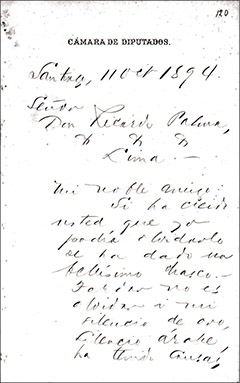 120
CÁMARA DE DIPUTADOS.
Santgo, 11 Oct 1894.
Señor
Don Ricardo Palma,
Lima.—
Mi noble amigo:
Si ha creido
usted que yo
podía olvidarlo
se ha dado un
bellísimo chasco.—
no es
olvidar i mi
silencio de oro,
silencio árabe,
ha tenido causas,